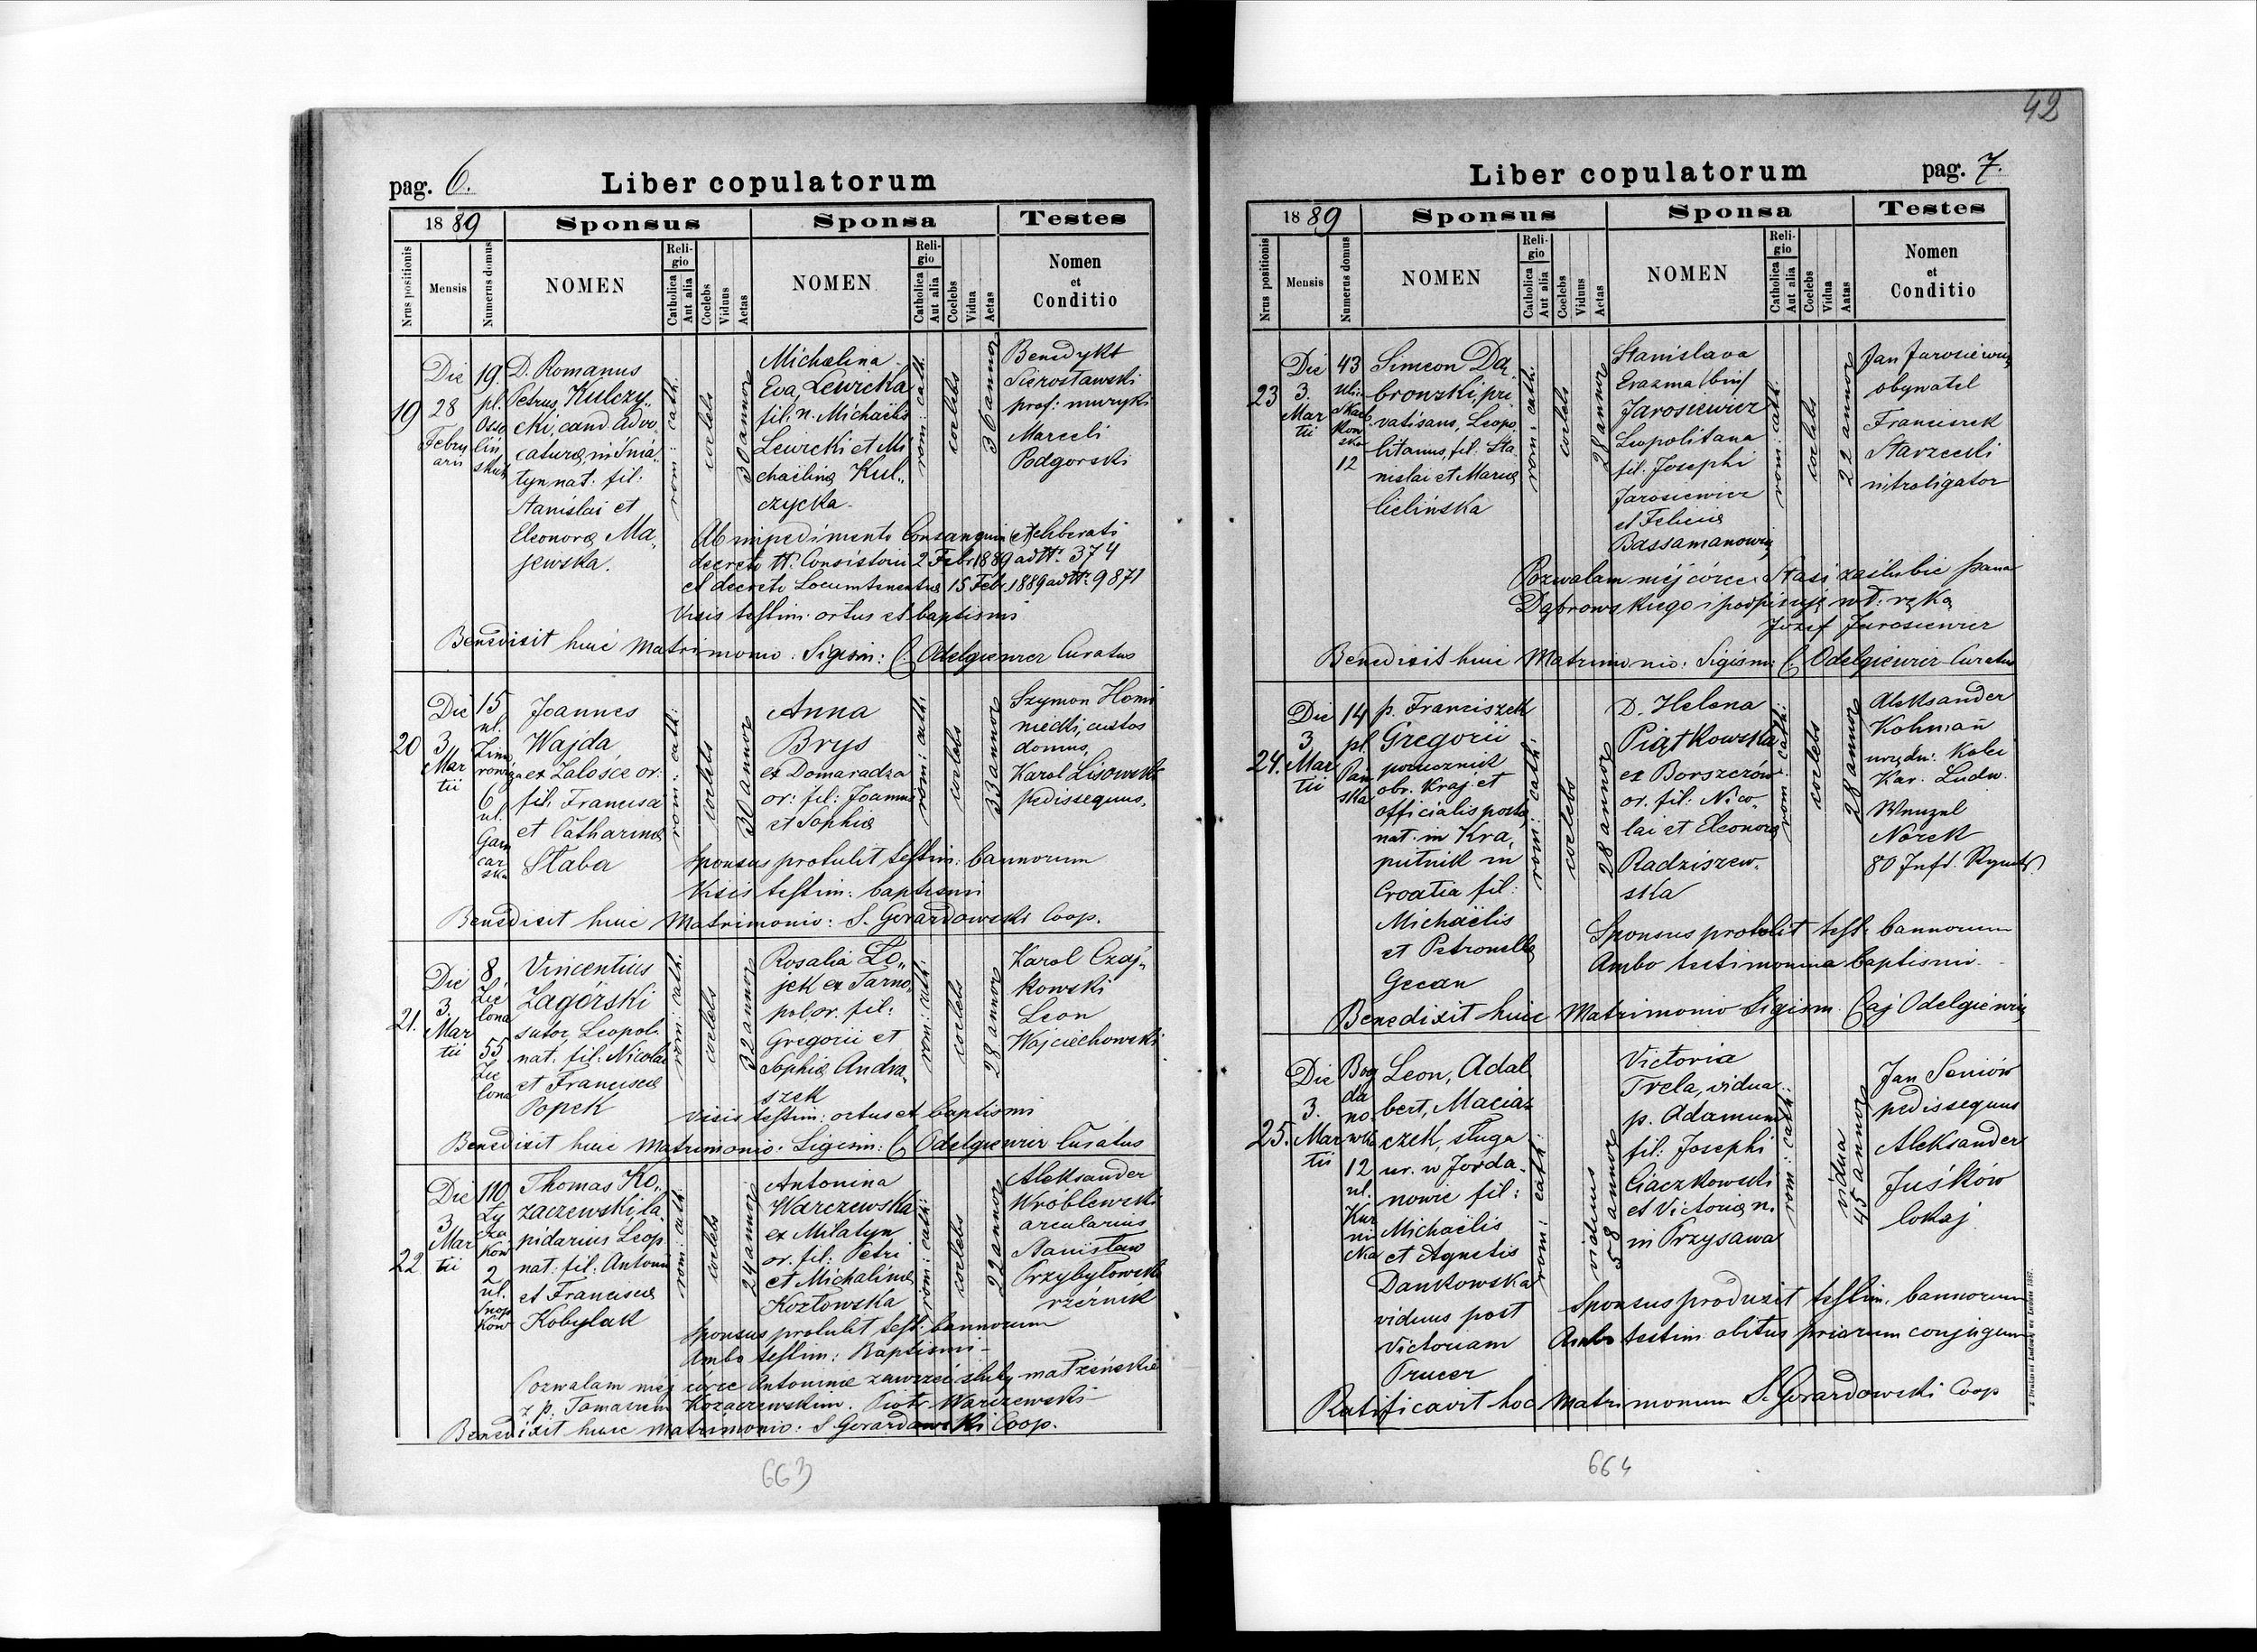 pag. 6.
Liber copulatorum
1889
Sponsus
Sponsa
Testes
Nrus positionis
Mensis
Numerus domus
NOMEN
Religio
Catholica
Aut alia
Coelebs
Viduus
Aetas
NOMEN
Religio
Catholica
Aut alia
Coelebs
Vidua
Aetas
Nomen
et
Conditio
19
Die
28
Febru
arii
19.
pl.
Osso
liń
skich
D. Romanus
Petrus Kulczy„
cki, cand. advo
caturæ, in Śnia
tyn nat. fil:
Stanislai et
Eleonoræ Ma„
jewska.
rom: cath.
coelebs
30 annor
Michaelina
Eva Lewicka
fil: n. Michaelis
Lewicki et Mi
chaelinæ Kul„
czycka.
rom: cath.
coelebs
30 annor
Benedykt
Sierosławski
prof: muzyki
Marceli
Podgorski
Ab impedimento Consanguin(et) liberati
decreto ttt. Consistorii 2 Febr 1889 ad ttt. 374
et decreto Locumtenentiæ 15 Feb. 1889 ad ttt. 9871
Visis testim: ortus et baptismi
Benedixit huic Matrimonio: Sigism: C. Odelgiewicz Curatus
20
Die
3
Mar
tii
15
ul.
Zimo
rowicza
6
ul.
Gan
car
ska
Joannes
Wajda
ex Załośce or:
fil. Francisci
et Catharinæ
Słaba
rom: cath:
coelebs
30 annor
Anna
Brys
ex Domaradza
or: fil: Joannis
et Sophiæ
rom: cath.
coelebs
33 annor
Szymon Homi
niedki, custos
domus,
Karol Lisowski
pedissequus,
Sponsus protulit testim: bannorum
Visis testim: baptismi
Benedixit huic Matrimonio: S. Gorardowski Coop.
21.
Die
3.
Mar
tii
8
Zie
lona
55
Zie
lona
Vincentius
Zagórski
sutor, Leopol.
nat. fil: Nicolai
et Franciscæ
Popek
rom: cath.
coelebs
32 annor
Rosalia Ło„
jek ex Tarno„
pol or. fil:
Gregorii et
Sophiæ Andra„
szek
rom: cath.
coelebs
28 annor
Karol Czaj„
kowski
Leon
Wojciechowski
Visis testim: ortus et baptismi
Benedixit huic Matrimonio. Sigism: C. Odelgiewicz Curatus
22
Die
3
Mar
tii
110
Ły
cza
ków
2
ul.
Snop
ków
Thomas Ko„
zaczewski la
pidarius Leop
nat: fil: Antonii
et Franciscæ
Kobylak
rom: cath.
coelebs
24 annor
Antonina
Warczewska
ex Milatyn
or. fil: Petri
et Michalinæ
Kozłowska
rom: cath:
coelebs
22 annor
Aleksander
Wróblewski
arcularius
Stanisław
Przybyłowski
rzeźnik
Sponsus protulit test. bannorum
Ambo testim: Baptismi
Pozwalam mej córce Antoninie zawrzeć śluby małżeńskie
z p. Tomaszem Kozaczewskim. Piotr Warczewski
Benedixit huic Matrimonio: S Gorardowski Coop.
663
42
Liber copulatorum
pag. 7.
1889
Sponsus
Sponsa
Testes
Nrus positionis
Mensis
Numerus domus
NOMEN
Religio
Catholica
Aut alia
Coelebs
Viduus
Aetas
NOMEN
Religio
Catholica
Aut alia
Coelebs
Vidua
Aetas
Nomen
et
Conditio
23
Die
3.
Mar
tii
43
ulica
Skarb
kow
ska
12
Simeon Dą
browski, pri
vatisans, Leopo
litanus, fil. Sta
nislai et Mariæ
Cielińska
rom: cath.
coelebs
28 annor
Stanislava
Erazma (bin)
Jarosiewicz
Leopolitana
fil. Josephi
Jarosiewicz
et Feliciæ
rom: cath.
coelebs
22 annor
Jan Jarosiewicz
obywatel
Franciszek
Starzecki
nitroligator
Pozwalam mej córce Stasi zaślubić pana
Dąbrowskiego i podpisuję wł. ręką
Józef Jarosiewicz
Benedixit huic Matrimonio: Sigism: C. Odelgiewicz Curatus
24.
Die
3
Mar
tii
14
pl.
Pań
ska
p. Franciszek
Gregorii
porucznik
obr. Kraj. et
officialis postæ
nat. in Kra„
putnik in
Croatia fil:
Michaëlis
et Petronellæ
Gecan
rom: cath:
coelebs
28 annor
D. Helena
Piątkowska
ex Borszczów
or. fil: Nico„
lai et Eleonoræ
Radziszew„
ska
rom: cath:
coelebs
28 annor
Aleksander
Kohmañ
urzędn: Kolei
Kar. Ludw.
Wenzel
Norek
80 Inft. Rgmts.
Sponsus protulit test: bannorum
Ambo testimonia baptismi.
Benedixit huic Matrimonio Sigism. Caj Odelgiewicz
25.
Die
3.
Mar
tii
Bog
da
no
wka
12
ul.
Kur
ni
cka
Leon, Adal
bert, Maciasz
czek, sługa
ur. w Jorda„
nowie fil:
Michaëlis
et Agnetis
Dankowska
viduus post
Victoriam
Prucer
rom: cath:
viduus
58 annor
Victoria
Trela, vidua
p. Adamum
fil: Josephi
Ciaczkowski
et Victoriæ n.
in Przysawa
rom: cath:
vidua
45 annor
Jan Seniów
pedissequus
Aleksander
Juśków
lokaj
Sponsus produxit testim. bannorum
Ambo testim obitus priarum conjugum
Ratificavit hoc Matrimonium S. Gorardowski Coop
664